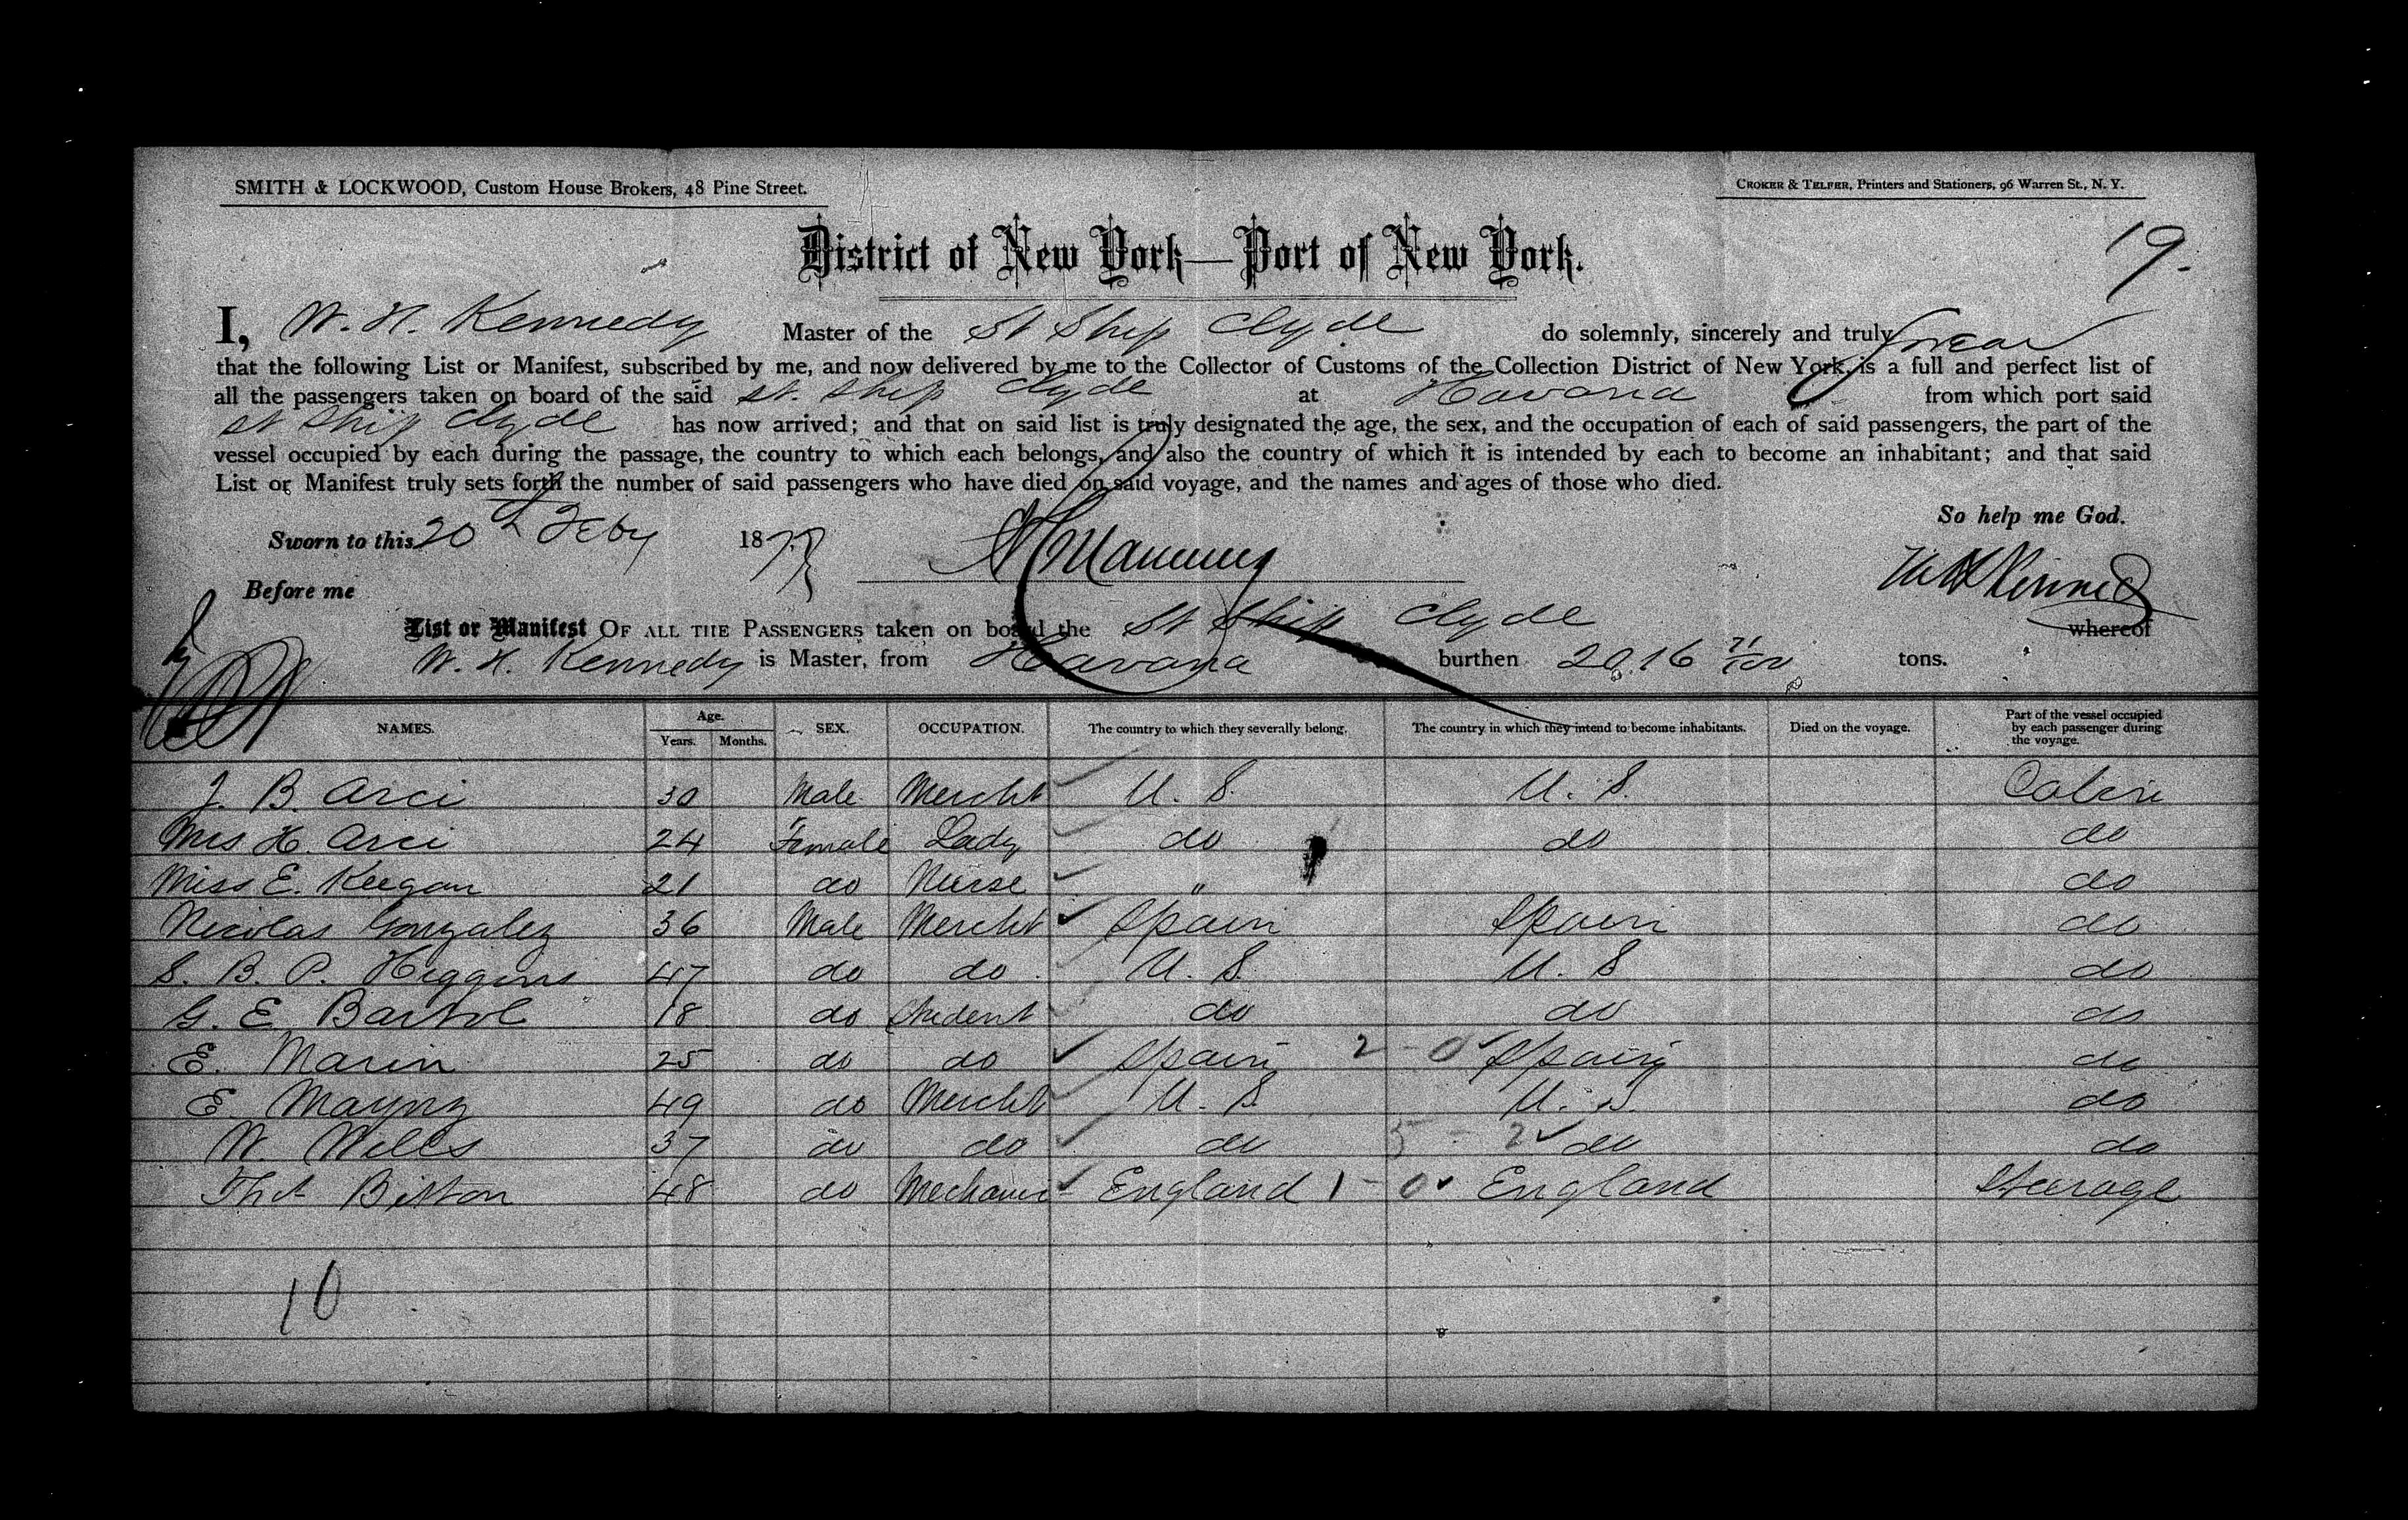 SMITH & LOCKWOOD, Custom House Brokers, 48 Pine Street.
CROKER & TELFER, Printers and Stationers, 96 Warren St., N. Y.
District of New York—Port of New York.
19.
I, W. H. Kennedy Master of the St Ship Clyde do solemnly, sincerely and truly swear
that the following List or Manifest, subscribed by me, and now delivered by me to the Collector of Customs of the Collection District of New York, is a full and perfect list of
all the passengers taken on board of the said St. Ship Clyde at Havana from which port said
St Ship Clyde has now arrived; and that on said list is truly designated the age, the sex, and the occupation of each of said passengers, the part of the
vessel occupied by each during the passage, the country to which each belongs, and also the country of which it is intended by each to become an inhabitant; and that said
List or Manifest truly sets forth the number of said passengers who have died on said voyage, and the names and ages of those who died.
So help me God.
Sworn to this 20th Feby 18
Before me
List or Manifest OF ALL THE PASSENGERS taken on board the St Ship Clyde whereof
W. H. Kennedy is Master, from Havana burthen 2016 71/100 tons.
NAMES. Age. Years. Months. SEX. OCCUPATION. The country to which they severally belong. The country in which they intend to become inhabitants. Died on the voyage. Part of the vessel occupied by each passenger during the voyage.
J. B. Arci 30 Male Mercht U. S. U. S. Cabin
Mrs H. Arci 24 Female Lady do do do
Miss E. Keegan 21 do Nurse " do
Nicolas Gonzalez 36 Male Mercht Spain Spain do
S. B. P. Higgins 47 do do U. S. U. S do
G. E. Bartol 18 do Student do do do
E. Marin 25 do do Spain 2 - 0 Spain do
E. Maynz 49 do Mercht U. S U. S. do
W. Wells 37 do do do 5 - 2 do do
Thos Bitton 48 do Mechanic England 1 - 0 England Steerage
10